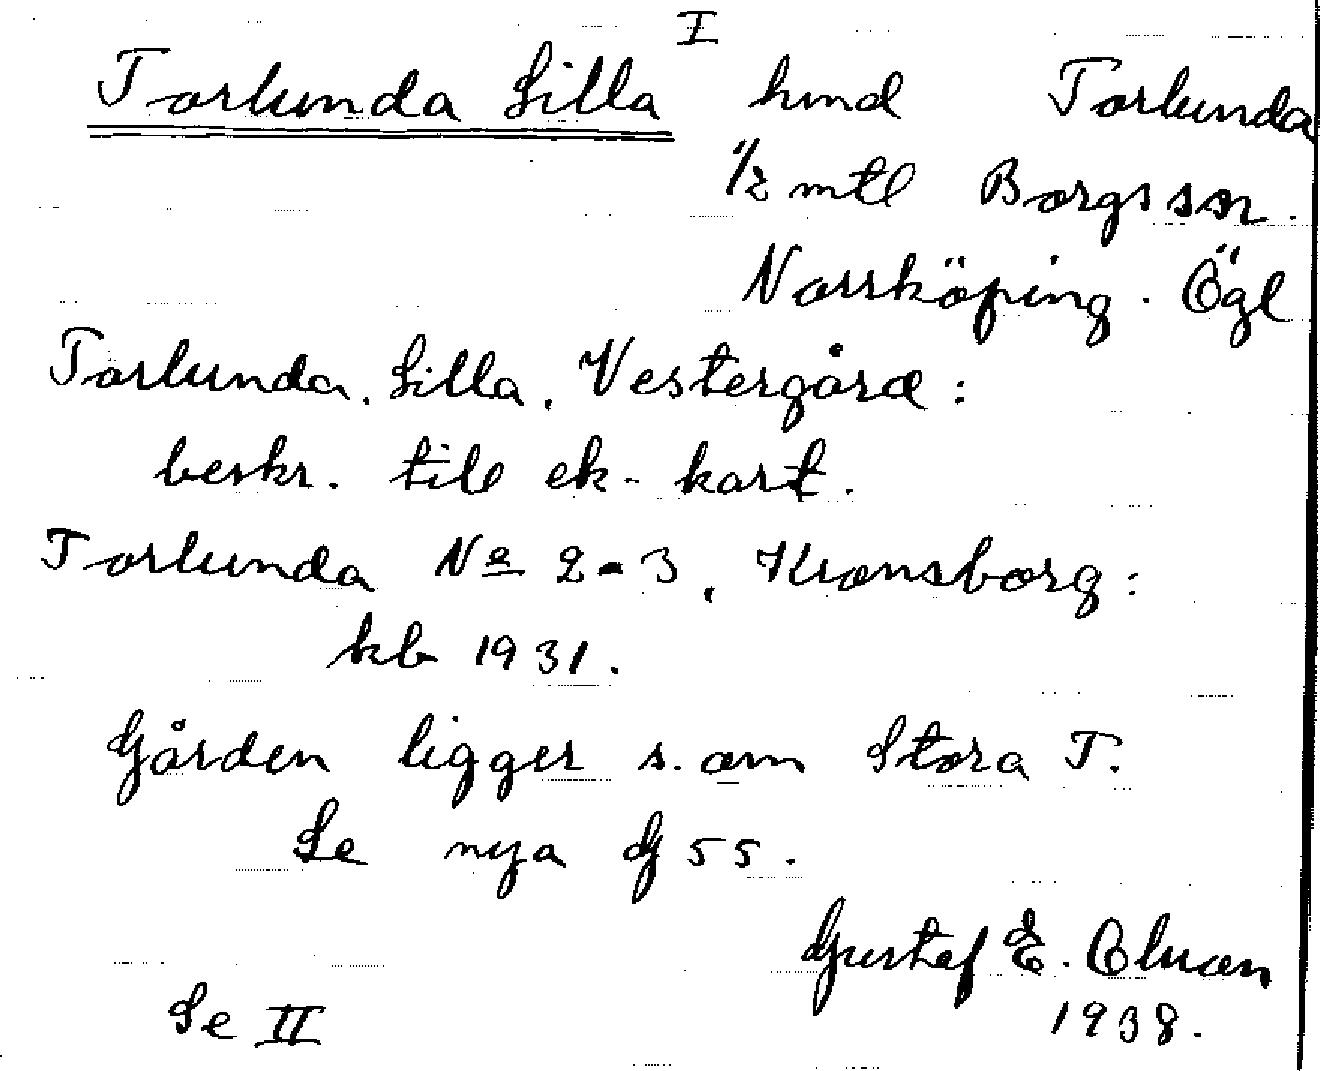 I
Torlunda Lilla hmd Torlunda
1/2 mtl Borgs sn.
Norrköping. Ögl
Torlunda, Lilla, Vestergård:
beskr. till ek. kart.
Torlunda No 2-3, Kronsborg:
kb 1931.
Gården ligger s. om Stora T.
Se nya G 55.
Gustaf E.
Se II 1938.